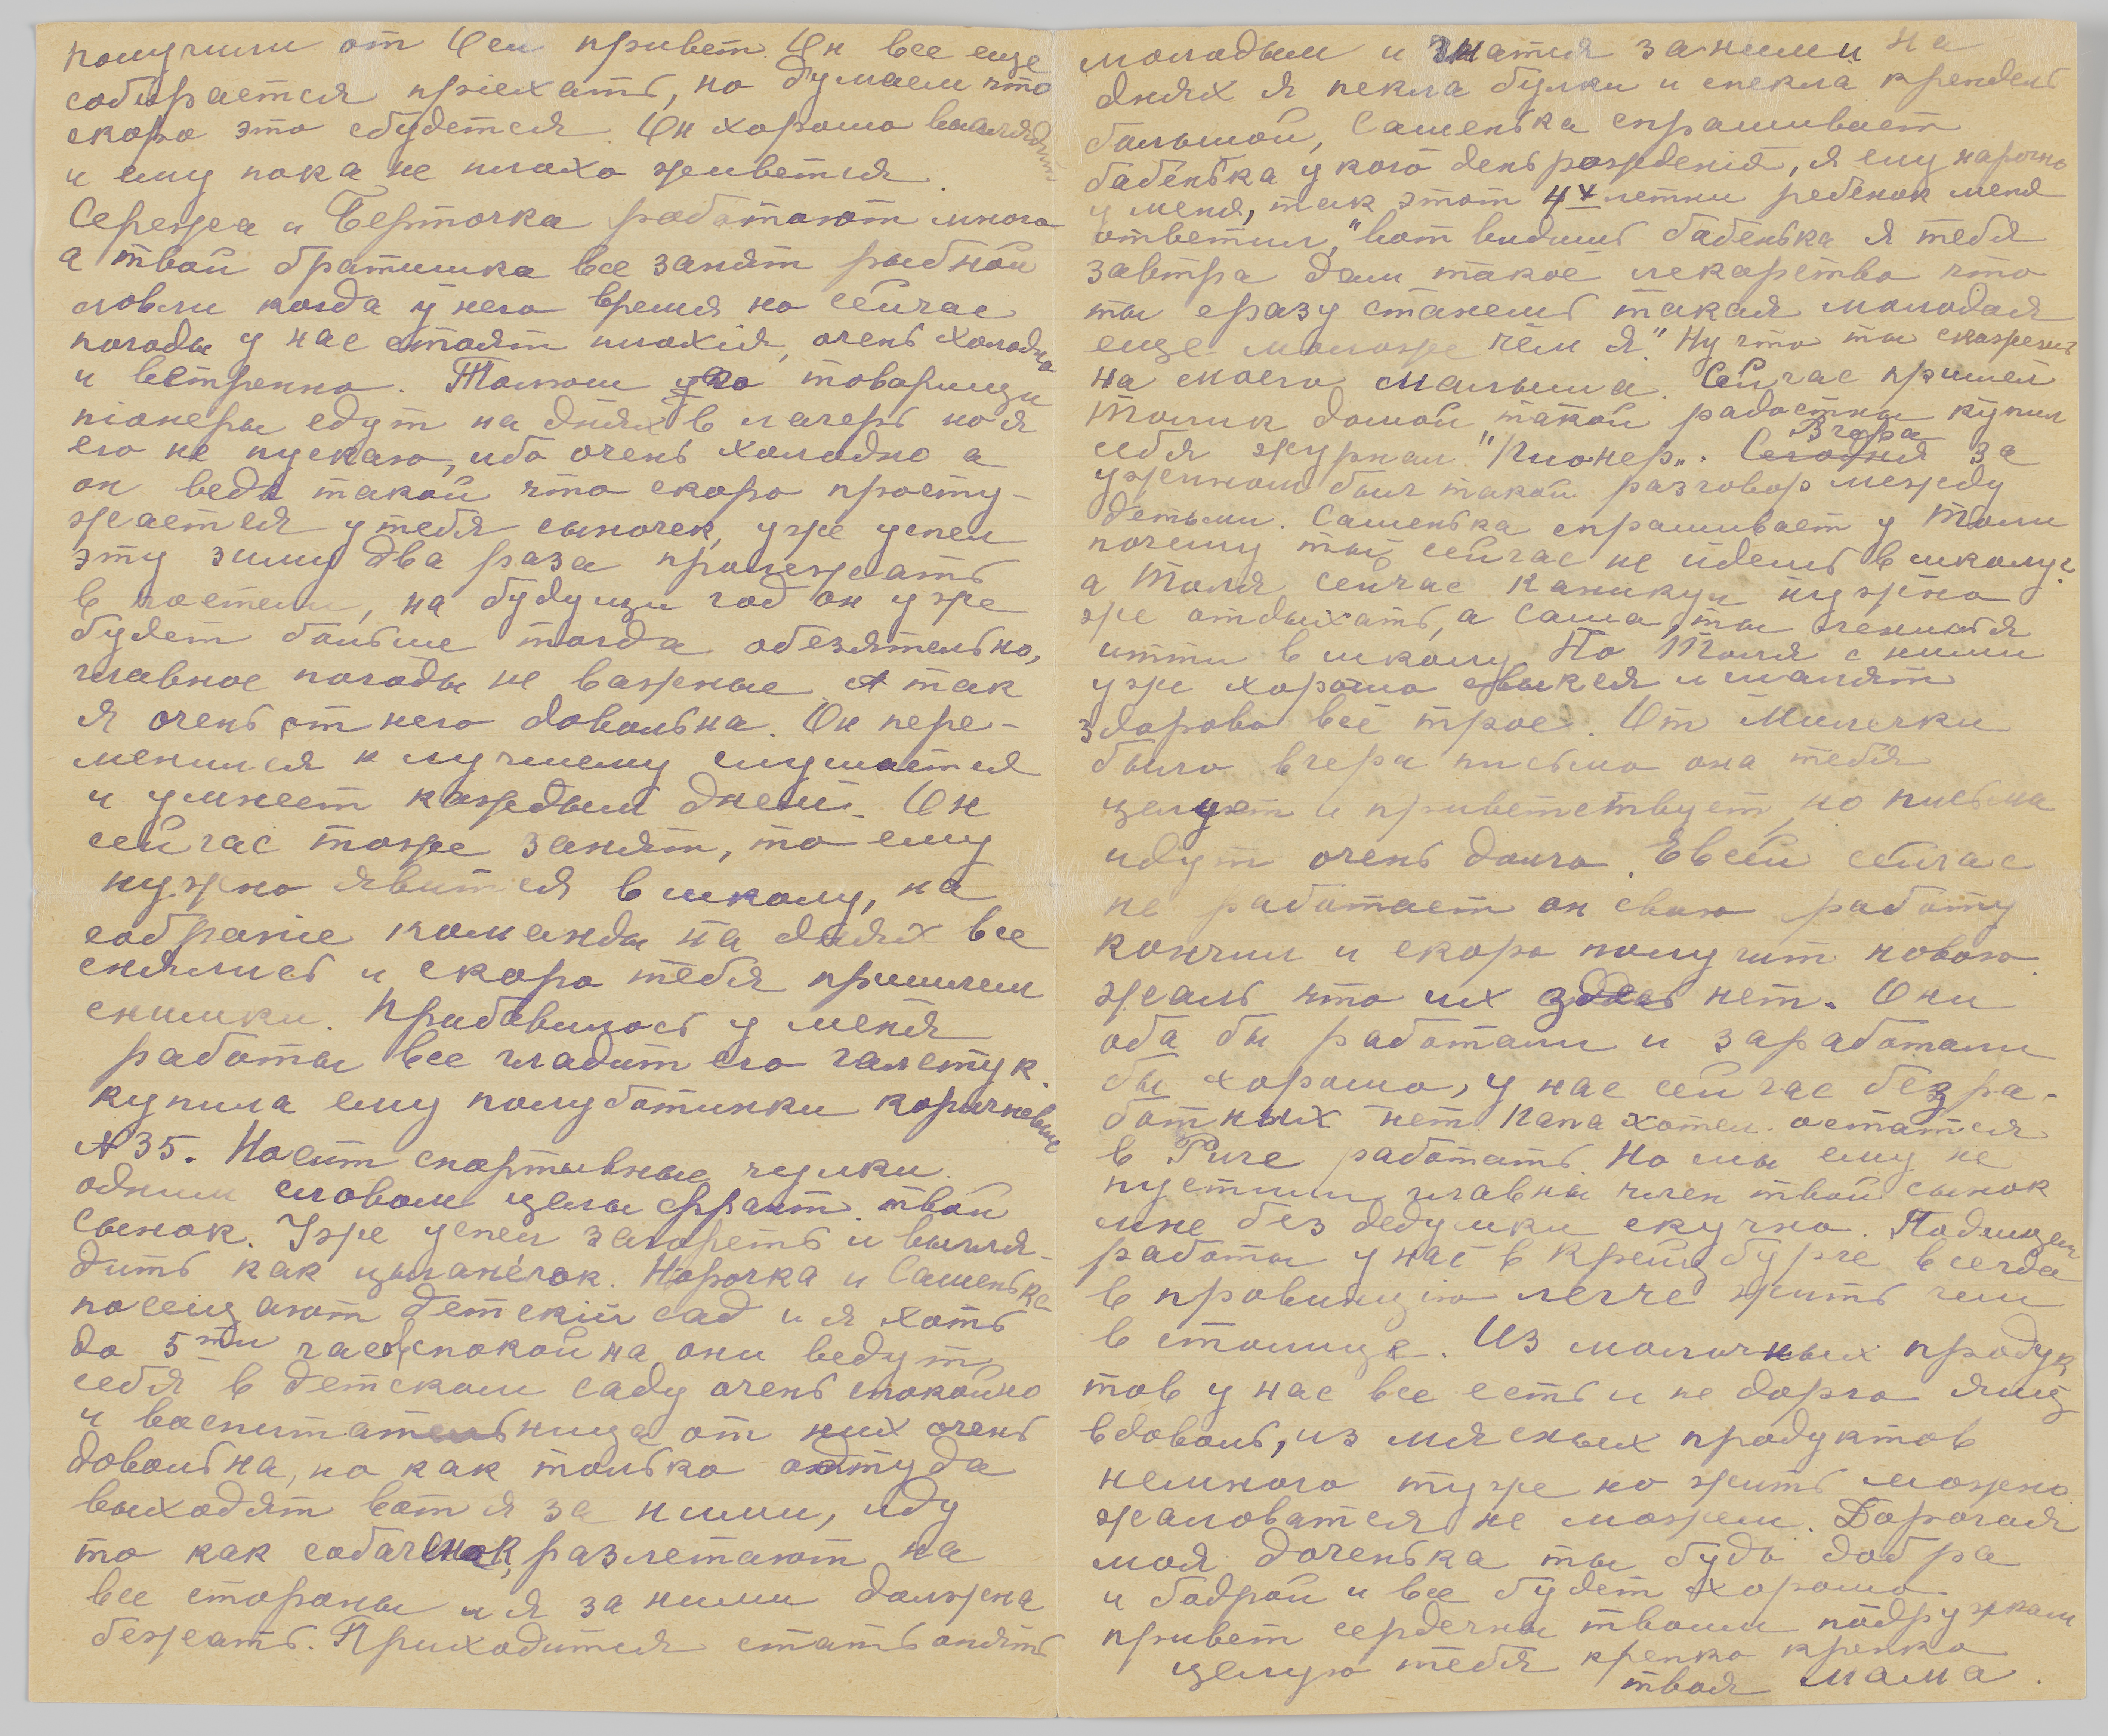 получили от Оси привет. Он все еще
собирается приехать, но думаем что
скоро это сбудется. Он хорошо выглядит
и ему пока не плохо живется.
Сережа и Берточка работают много
а твой братишка все занят рыбной
ловли когда у него время но сейчас
погоды у нас стоят плохія, очень холодно
и ветренно. Толины товарищи
піонеры едут на днях в лагерь но я
его не пускаю, ибо очень холодно а
он ведь такой что скоро просту-
жается у тебя сыночек, уже успел
эту зиму два раза пролежать
в постели, на будущи год он уже
будет больше тогда обезятельно,
главное погоды не важные. А так
я очень от него довольна. Он пере-
менился к лучшему слушается
и умнеет каждым днем. Он
сейчас тоже занят, то ему
нужно явится в школу, на
собраніе команды на днях все
снялись и скоро тебя пришлем
снимки. Прибавилось у меня
работы все гладит его галстук.
купила ему полуботинки коричневые
№ 35. Носит спортивные чулки.
одним словом целы франт твой
сынок. Уже успел загореть и выгля-
дить как цыганёнок. Норочка и Сашенька
посещают детскій сад и я хоть
до 5ти часов спокойна они ведут
себя в детском саду очень спокойно
и воспитательница от них очень
довольна, но как только оттуда
выходят вот я за ними, иду
то как собаченок, разлетают на
все стороны и я за ними должна
бежать. Приходится стать опять
молодым и гнатся за ними На
днях я пекла булки и спекла крендель
большой, Сашенька спрашивает
бабенька у кого день рожденія, я ему нарочно
у меня, так этот 4х летни ребенок меня
ответил, "вот видишь бабенька я тебя
завтра дам такое лекарство что
ты сразу станешь такая молодая
еще моложе чем я." Ну что ты скажешь
на моего малыша. Сейчас пришел
Толик домой такой радостны купил
себя журнал "Пионер". Сегодня Вчера за
ужином был такой разговор между
детьми. Сашенька спрашивает у Толи
почему ты сейчас не идешь в школу?
а Толя сейчас каникули нужно
же отдыхать, а Саша, ты ленися
итти в школу. Но Толя с ними
уже хорошо свыкся и шалят
здорово всё трое. От Милочки
было вчера письмо она тебя
целует и приветствует, но письма
идут очень долго. Евсей сейчас
не работает он свою работу
кончил и скоро получит новою.
жаль что их здесь нет. Они
оба бы работали и заработали
бы хорошо, у нас сейчас безра-
ботных нет. Папа хотел остатся
в Риге работать. Но мы ему не
пустили, главны член твой сынок
мне без дедушки скучно. Подыщем
работы у нас в Крейцбурге всегда
в провинцию легче жить чем
в столице. Из молочных продук
тов у нас все есть и не дорго яиц
вдоволь, из мясных продуктов
немного туже но жить можно
жаловатся не можем. Дорогая
моя доченька ты будь добра
и бодрой и все будет хорошо
привет сердечны твоим подружкам
целую тебя крепко крепко
твоя мама.